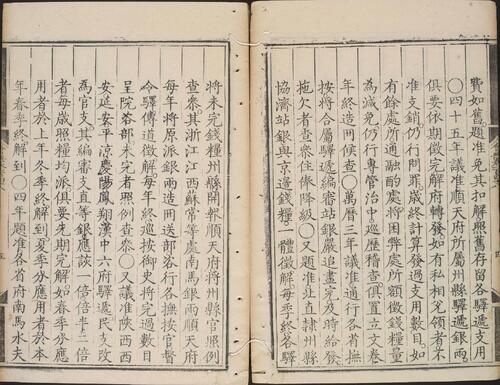 費如舊題准免其扣解照舊存留各驛遞支用
〇四十五年議准順天府所屬州縣驛遞銀兩
俱要依期徵完解府轉發如有私相兌領者不
准支銷仍行問罪歲終計算發過支用數目如
有餘處所通融酌處將困弊處所額徵錢糧量
為減免仍行專管治中巡歷稽查俱置立文卷
年終造冊候查〇萬曆三年議准通行各省撫
按將合屬驛遞編審站銀嚴追盡完及時給發
拖欠者查參住俸降級〇又題准並直隷州縣
協濟站銀與京邊錢糧一體徵解每季終各驛
將未完錢糧州縣開報順天府將州縣官照例
查參其浙江江西蘇常等處南馬銀兩順天府
每年將原派銀兩造冊送部咨行各撫按官督
令驛傳道徵解每年終巡按御史將完過數目
呈院咨部未完者照例查參〇又議准陝西西
安延安平涼慶陽鳳翔漢中六府驛遞民支改
為官支其編審支直等銀應該一倍二倍半二倍
者每歲照糧均派俱要先期完解如春季分應
用者於上年冬季終解到夏季分應用者於本
年春季終解到〇四年題准各省府南馬水夫